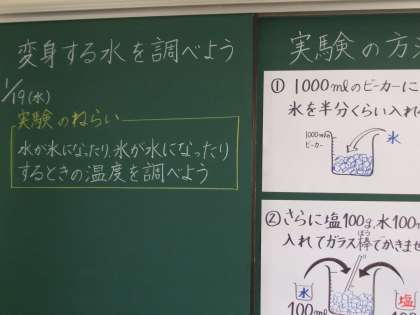 変身する水を調べよう
1/19(水)
実験のねらい
水が氷になったり、氷が水になったり
するときの温度を調べよう
実験の方
① 1000mlのビーカーに
氷を半分くらい入れ
1000mlの
ビーカー
氷
② さらに塩100g、水100m
入れてガラス棒でかきませ
ぼう
水
100m
塩
100